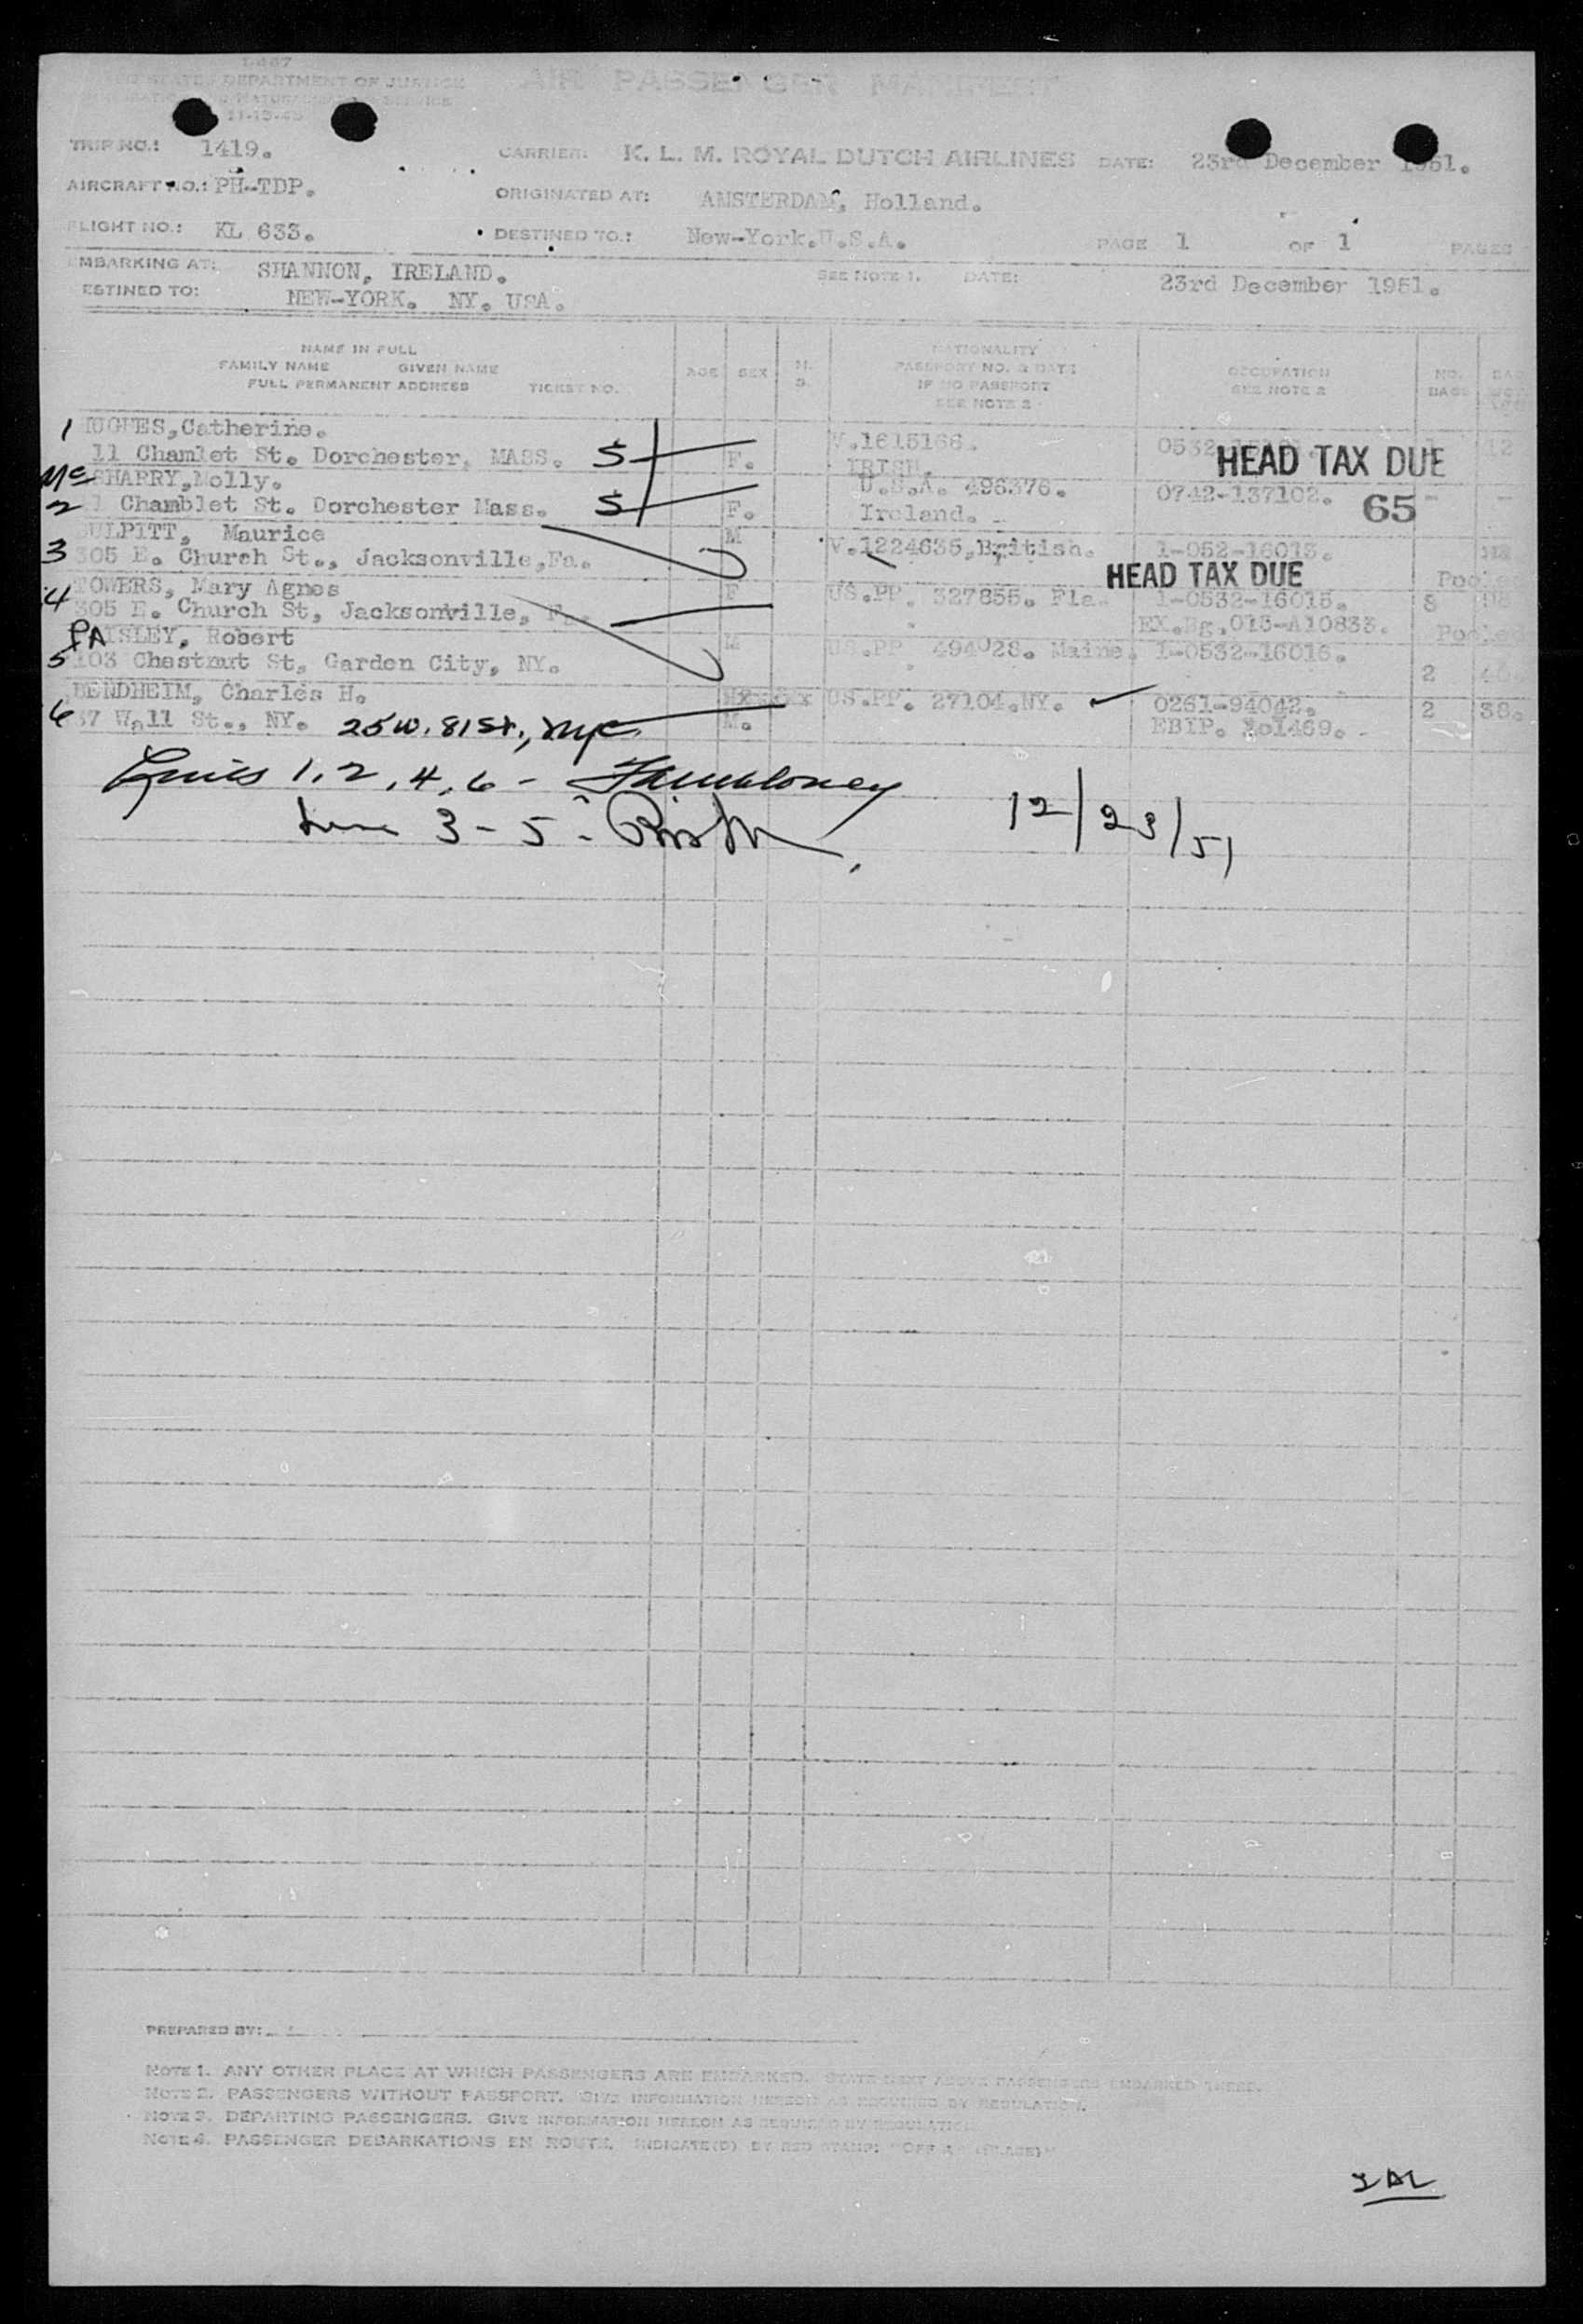 I-467
UNITED STATES DEPARTMENT OF JUSTICE
IMMIGRATION AND NATURALIZATION SERVICE
11-15-45
AIR PASSENGER MANIFEST
TRIP NO.: 1419.
CARRIER: K. L. M. ROYAL DUTCH AIRLINES DATE: 23rd December 1951.
AIRCRAFT NO.: PH-TDP.
ORIGINATED AT: AMSTERDAM, Holland.
FLIGHT NO.: KL 633.
DESTINED TO.: New-York.U.S.A. PAGE 1 OF 1 PAGES
EMBARKING AT: SHANNON, IRELAND. SEE NOTE 1. DATE: 23rd December 1951.
DESTINED TO: NEW-YORK. NY. USA.
NAME IN FULL
FAMILY NAME GIVEN NAME
FULL PERMANENT ADDRESS TICKET NO.
AGE SEX M. S.
NATIONALITY
PASSPORT NO. & DATE
IF NO PASSPORT
SEE NOTE 2
OCCUPATION
SEE NOTE 2
NO. BAGS
1 HUGHES,Catherine. V.1615166.
11 Chamlet St. Dorchester, MASS. S F. IRISH. 12
HEAD TAX DUE
Mc SHARRY,Molly. U.S.A. 496376. 0742-137102. - -
2 11 Chamblet St. Dorchester Mass. S F. Ireland. 65
BULPITT, Maurice M V.1224635,British. 1-052-16013.
3 305 E. Church St., Jacksonville,Fa. HEAD TAX DUE Pooled
TOWERS, Mary Agnes F US.PP. 327855. Fla. 1-0532-16015. 8 98
4 305 E. Church St, Jacksonville, Fl. EX.Bg.015-A10833. Pooled
PAISLEY, Robert M US.PP 494028. Maine. 1-0532-16016.
5 103 Chestnut St, Garden City, NY. 2
BENDHEIM, Charles H. US.PP. 27104.NY. 0261-94042. 2 38.
6 37 Wall St., NY. 25 W. 81 St., NYC M. EBIP.
Lines 1, 2, 4, 6 -
Line 3 - 5 - 12/23/51
PREPARED BY:
NOTE 1. ANY OTHER PLACE AT WHICH PASSENGERS ARE EMBARKED. STATE NEXT ABOVE PASSENGERS EMBARKED THERE.
NOTE 2. PASSENGERS WITHOUT PASSPORT. GIVE INFORMATION HEREON AS REQUIRED BY REGULATION.
NOTE 3. DEPARTING PASSENGERS. GIVE INFORMATION HEREON AS REQUIRED BY REGULATION
NOTE 4. PASSENGER DEBARKATIONS EN ROUTE. INDICATE(D) BY RED STAMP: "OFF AT (PLACE)"